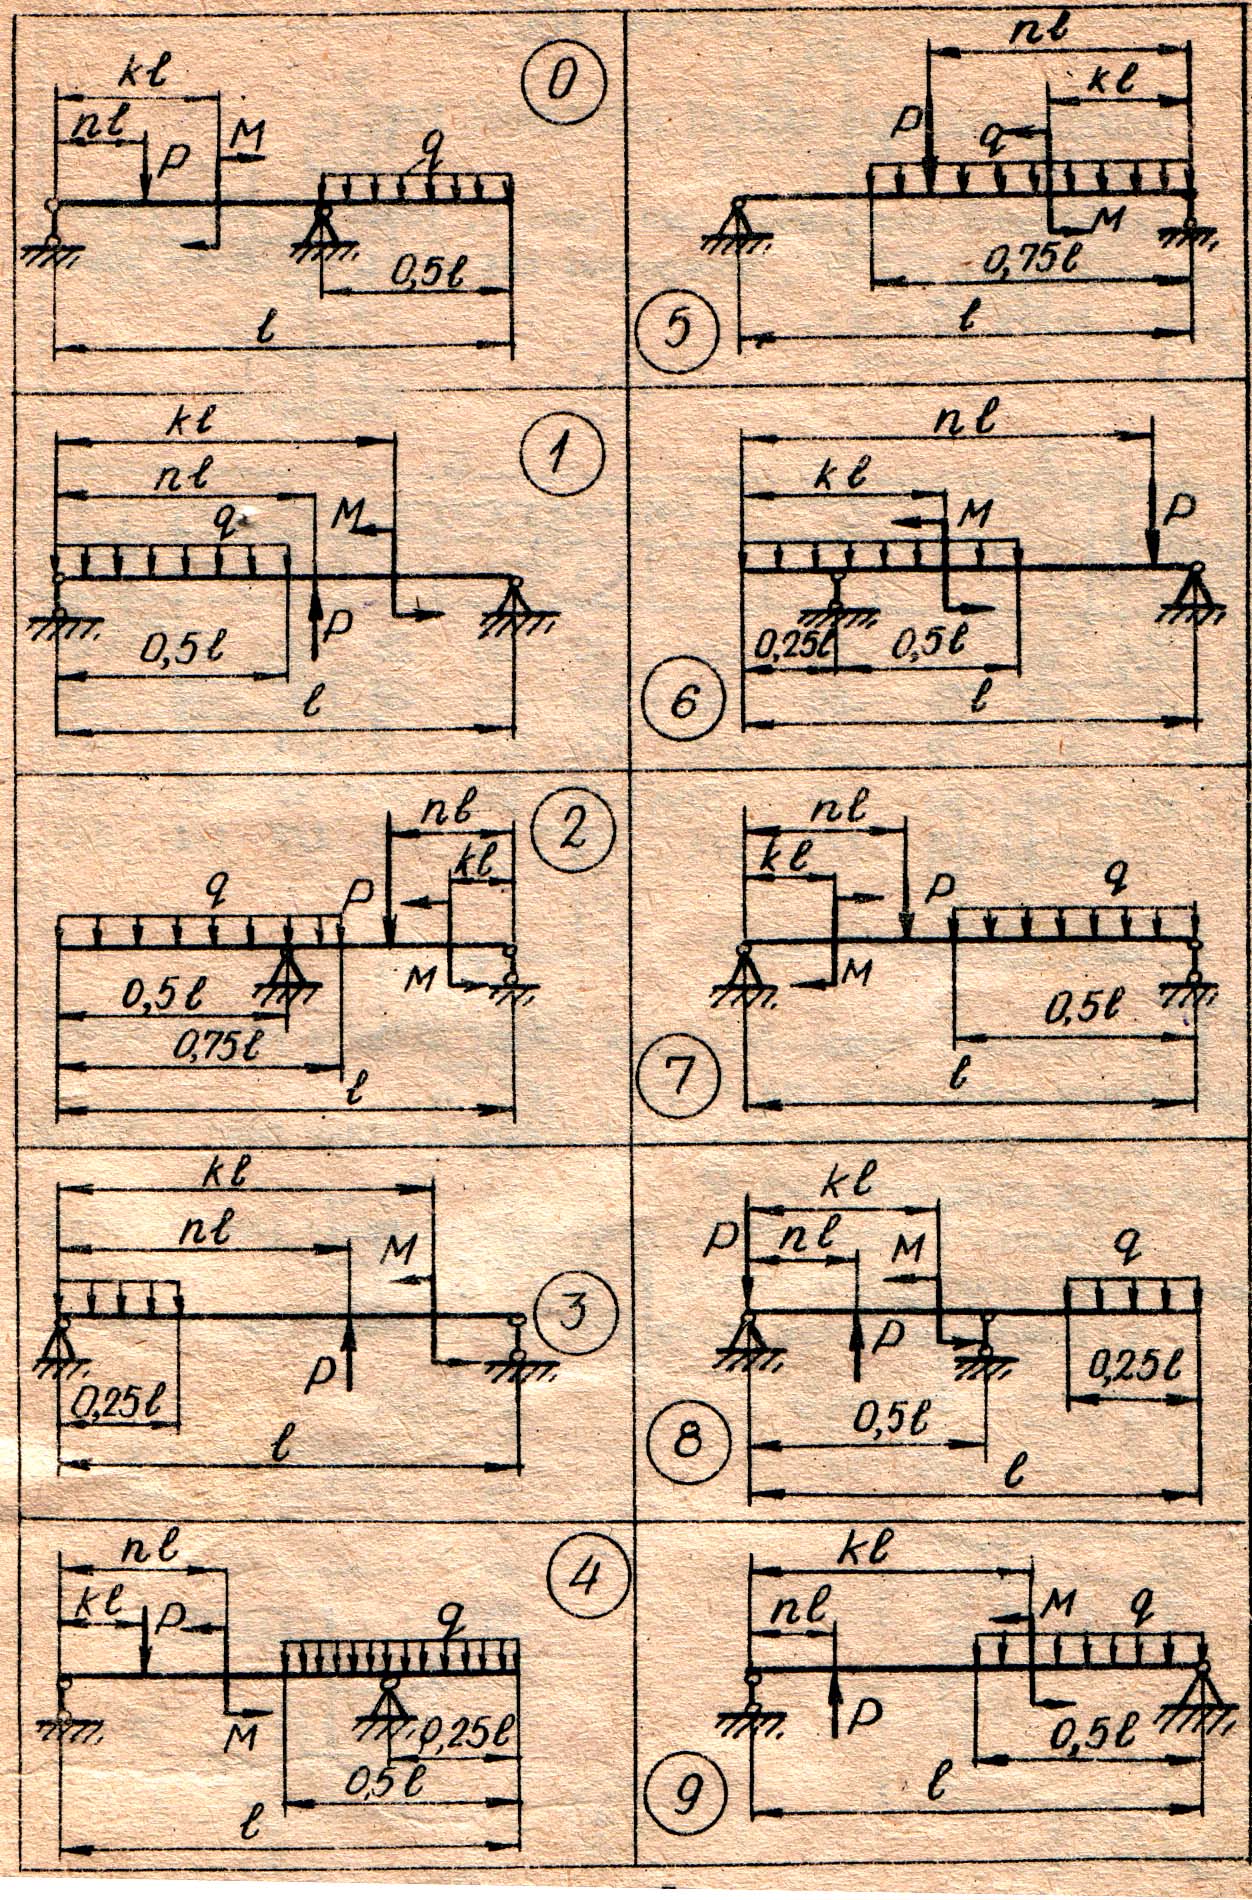 0
kl
nl
P
M
q
0,5l
l
1
kl
nl
q
M
P
0,5l
l
2
nl
kl
q
P
M
0,5l
0,75l
l
3
kl
nl
M
P
0,25l
l
4
nl
kl
P
q
M
0,25l
0,5l
l
5
nl
kl
P
q
M
0,75l
l
6
nl
kl
M
P
0,25l
0,5l
l
7
nl
kl
P
q
M
0,5l
l
8
kl
P
nl
M
q
P
0,25l
0,5l
l
9
kl
nl
M
q
P
0,5l
l